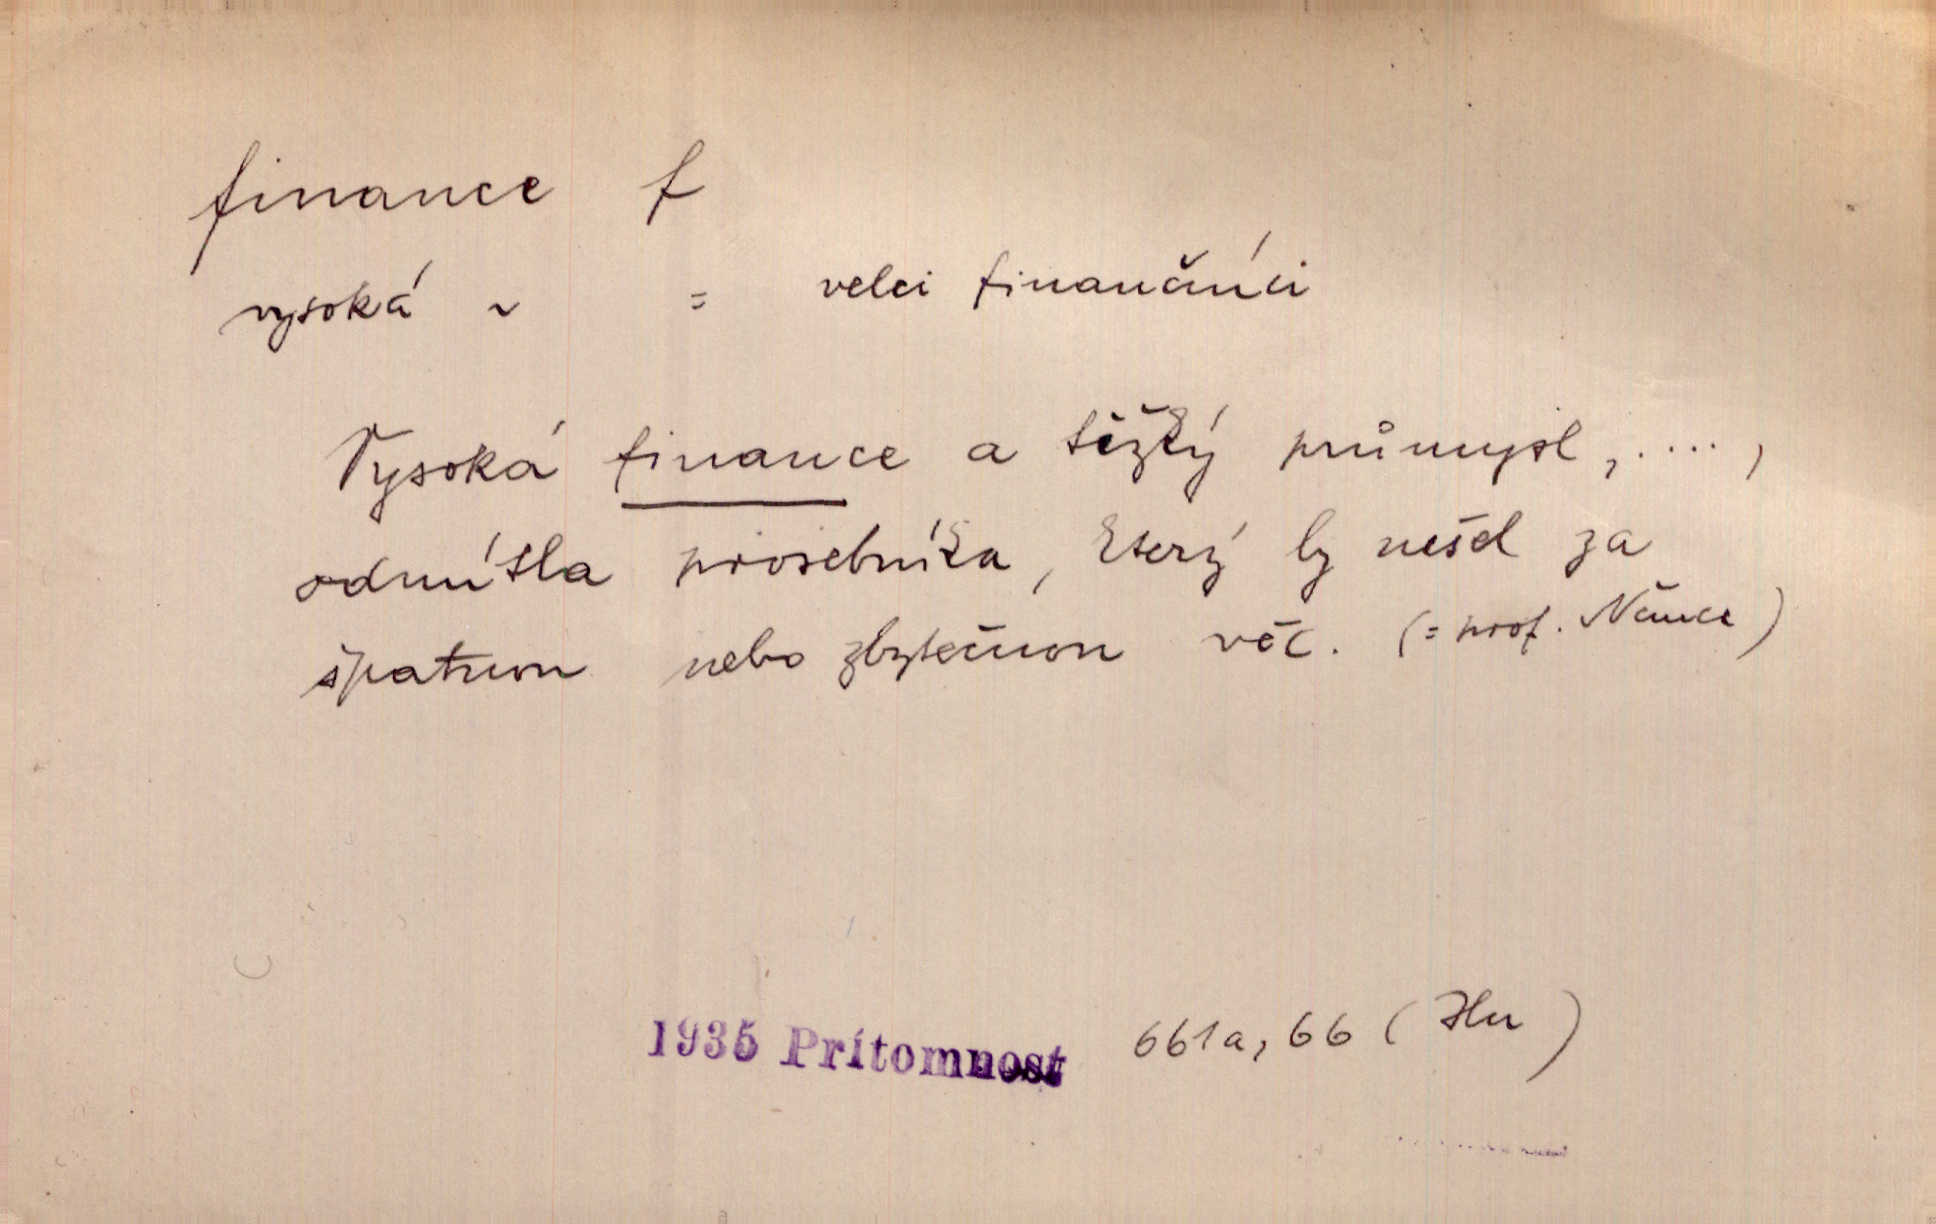 finance f
vysoká ~ = velcí finančníci
Vysoká finance a těžký průmysl, ....,
odmítla prosebníka, který by nešel za
špatnou nebo zbytečnou věc. (= prof. Němce)
1935 Prítomnost 661a, 66 ( )